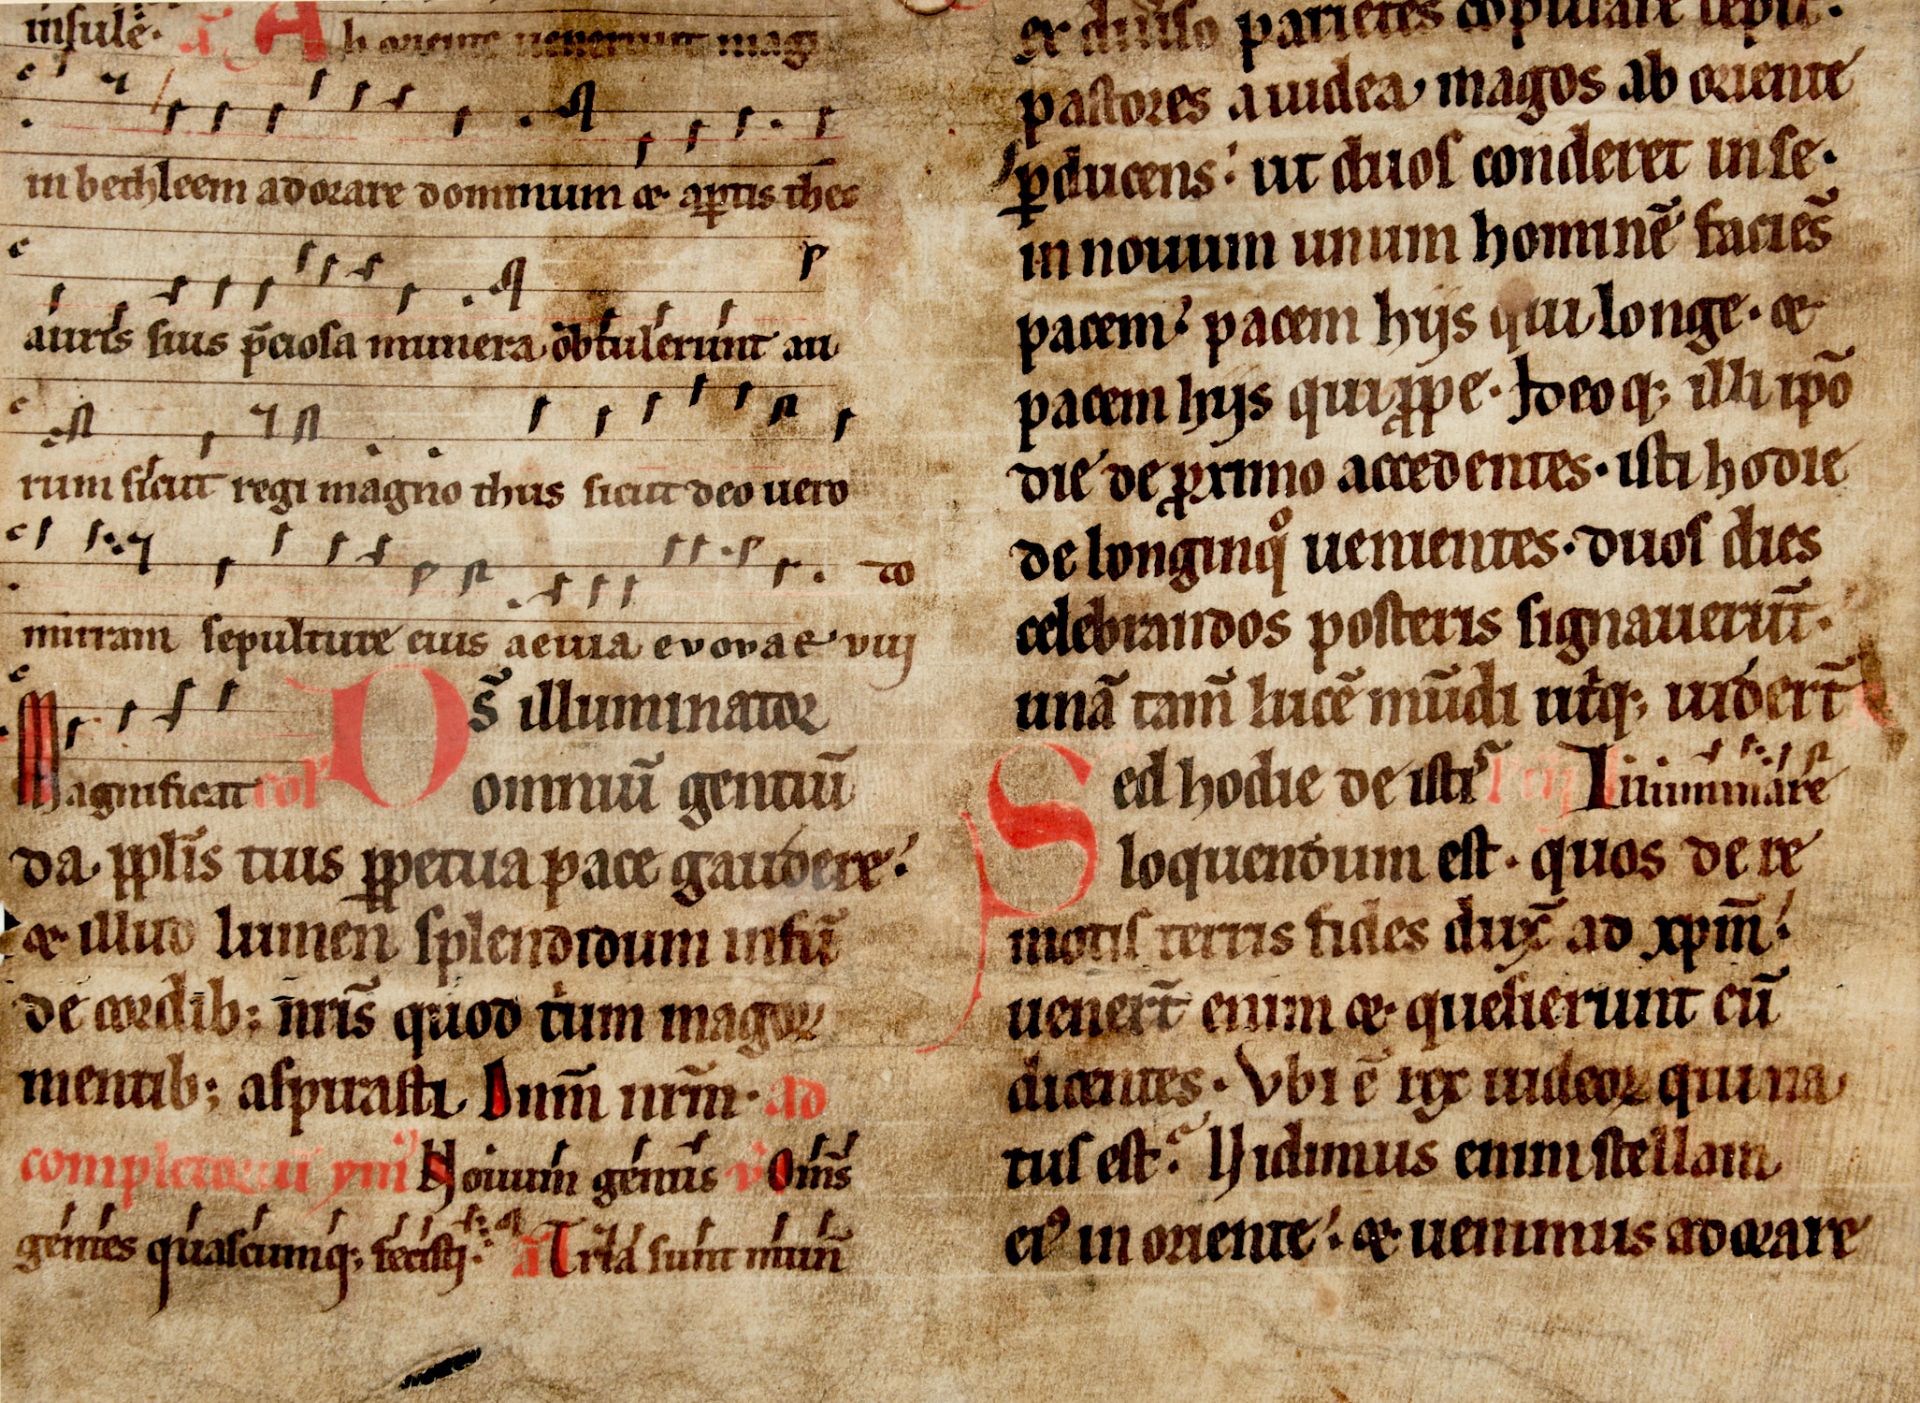 insule. a Ab oriente uenerunt magi
in bethleem adorare dominum ⁊ aꝑtis thes
auris suis p̄ciosa munera obtulerunt au
rum sicut regi magno thus sicut deo uero
to
mirram sepulture eius aeuia evovae viij
Ds̄ illuminator
Magnificat col omniū gentiū
da pplīs tuis ꝑpetua pace gaudere.
⁊ illud lumen splendidum infū
de cordib; nr̄is quod trium magoꝝ
mentib; aspirasti. Dnm̄ nrm̄. ad
completoriū ymꝰ Nouum genus v Om̄s
gentes quascumq; fecisti. a Tria sunt mun̄
ex diuso parietes copulare
pastores a iudea magos ab oriente
ꝑducens. ut duos conderet in se.
in nouum unum hominē facies̄
pacem. pacem hijs qui longe. ⁊
pacem hijs qui ꝓpe. Ideoq; illi ipō
die de ꝓximo accedentes. isti hodie
de longinqͦ uenientes. duos dies
celebrandos posteris signauerūt.
unā tam̄ lucē mūdi utq; uidert̄
Sed hodie de istis Illuminare
loquendum est. quos de re
motis terris fides dux̄ ad xpm̄.
uenert̄ enim ⁊ quesierunt eū
dicentes. Vbi ē rex iudeoꝝ qui na
tus est. Uidimus enim stellam
eiꝰ in oriente. ⁊ uenimus adorare